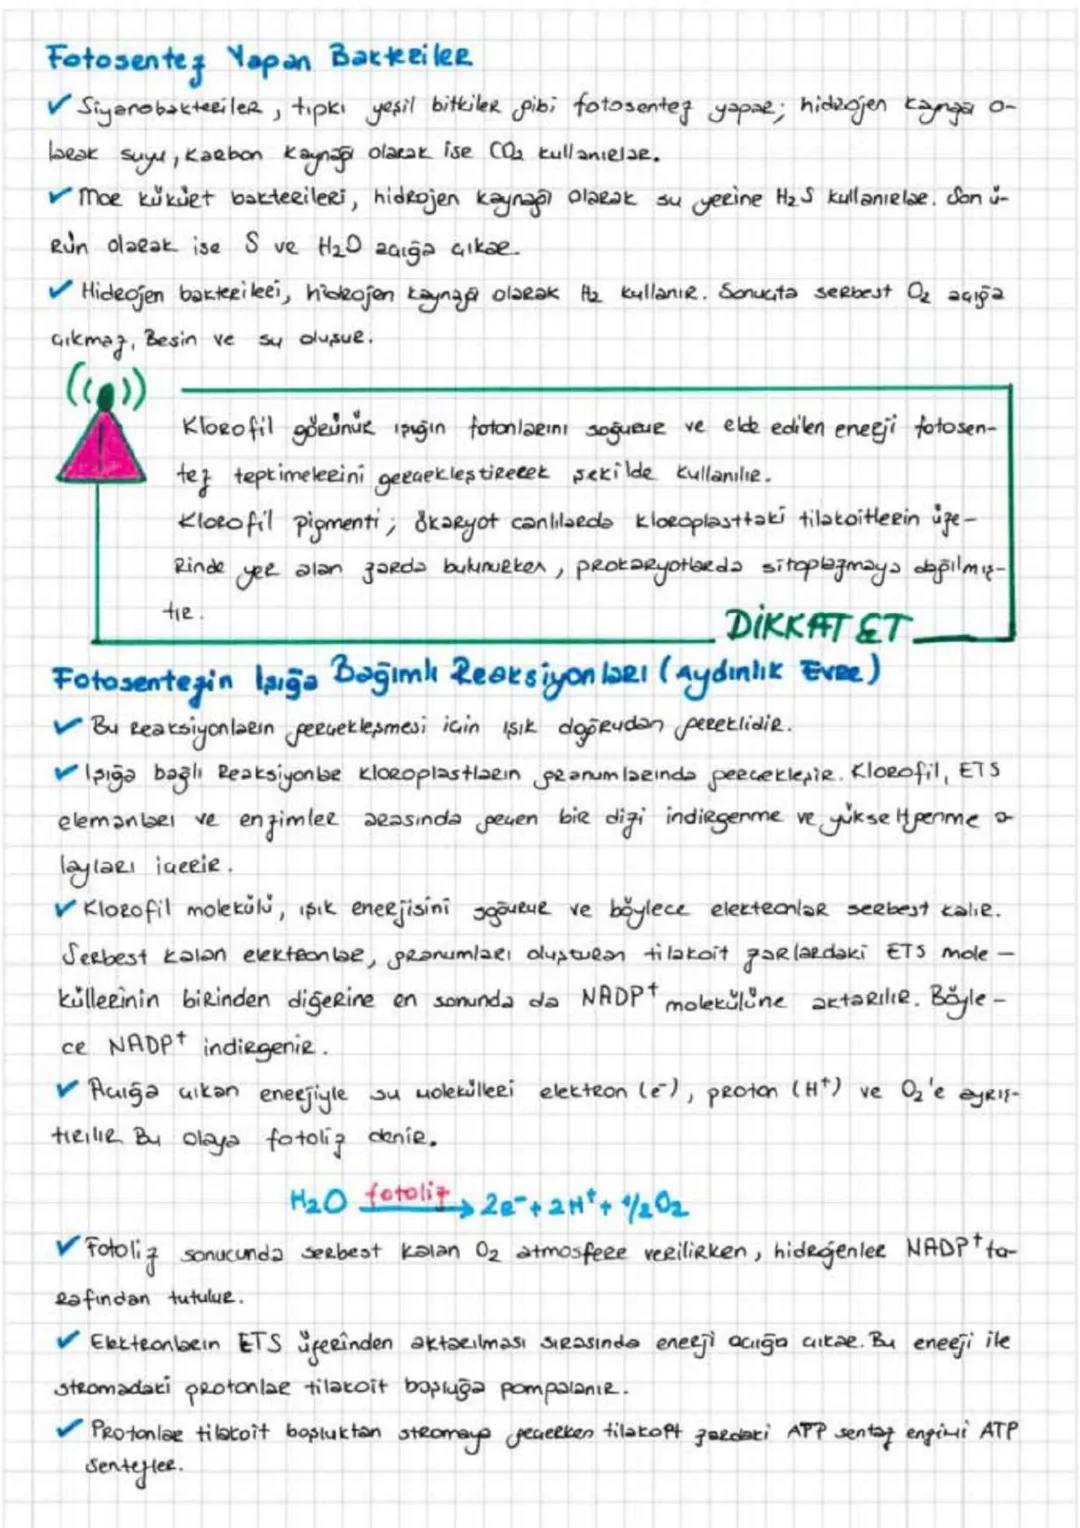 Fotosentez Yapan Bakteriler
✓ Siyanobakteriler, tıpkı yeşil bitkiler gibi fotosentez yapar; hidrojen kaynağı o-
larak suyu, karbon kaynağı olarak ise CO₂ kullanırlar.
✓ Mor kükürt bakterileri, hidrojen kaynağı olarak su yerine H₂S kullanırlar. Son ü-
rün olarak ise S ve H₂O açığa çıkar.
✓ Hidrojen bakterileri, hidrojen kaynağı olarak H₂ kullanır. Sonuçta serbest O₂ açığa
çıkmaz, Besin ve su oluşur.
Klorofil görünür ışığın fotonlarını soğurur ve elde edilen enerji fotosen-
tez tepkimelerini gerçekleştirecek şekilde kullanılır.
Klorofil pigmenti; ökaryot canlılarda kloroplasttaki tilakoitlerin üze-
rinde yer alan zarda bulunurken, prokaryotlarda sitoplazmaya dağılmış-
tır.
DİKKAT ET
Fotosentezin Işığa Bağımlı Reaksiyonları (Aydınlık Evre)
✓ Bu reaksiyonların gerçekleşmesi için ışık doğrudan gereklidir.
✓ Işığa bağlı Reaksiyonlar kloroplastların granumlarında gerçekleşir. Klorofil, ETS
elemanları ve enzimler arasında geçen bir dizi indirgenme ve yükseltgenme o-
layları içerir.
✓ Klorofil molekülü, ışık enerjisini soğurur ve böylece elektronlar serbest kalır.
Serbest kalan elektronlar, granumları oluşturan tilakoit zarlardaki ETS mole-
küllerinin birinden diğerine en sonunda da NADP⁺ molekülüne aktarılır. Böyle-
ce NADP⁺ indirgenir.
✓ Açığa çıkan enerjiyle su molekülleri elektron (e⁻), proton (H⁺) ve O₂'e ayrış-
tırılır Bu olaya fotoliz denir.
H₂O fotoliz → 2e⁻ + 2H⁺ + 1/2 O₂
✓ Fotoliz sonucunda serbest kalan O₂ atmosfere verilirken, hidrojenler NADP⁺ ta-
rafından tutulur.
✓ Elektronların ETS üzerinden aktarılması sırasında enerji açığa çıkar. Bu enerji ile
stromadaki protonlar tilakoit boşluğa pompalanır.
✓ Protonlar tilakoit boşluktan stromaya geçerken tilakoit zardaki ATP sentaz enzimi ATP
sentezler.